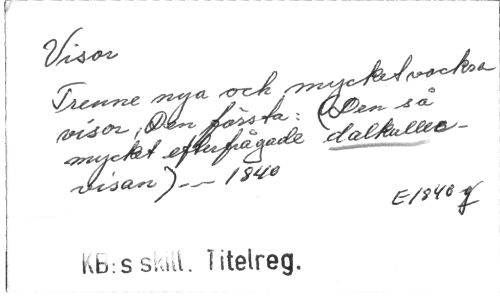 Visor
Trenne nya och mycket vackra
visor, Den första: (Den så
mycket efterfrågade dalkulle-
visan) -- 1840
E 1840 g
KB:s skill. Titelreg.